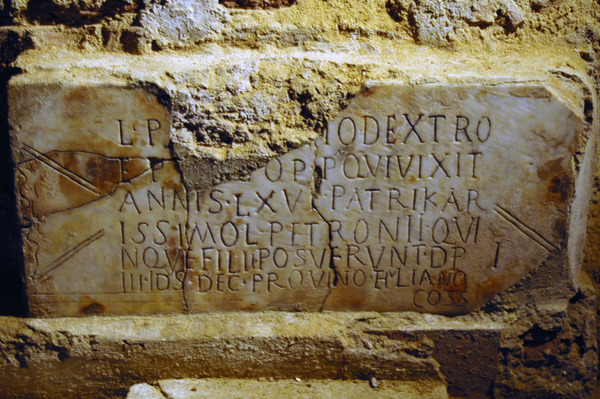 L·P IODEXTRO
OPPQVIVIXIT
ANNIS·LXV PATRIKAR
ISSIMOL·PETRONII·QVI
NQVEFILIIPOSVERVNTDP I
III·IDS·DEC·PROVINO
COSS